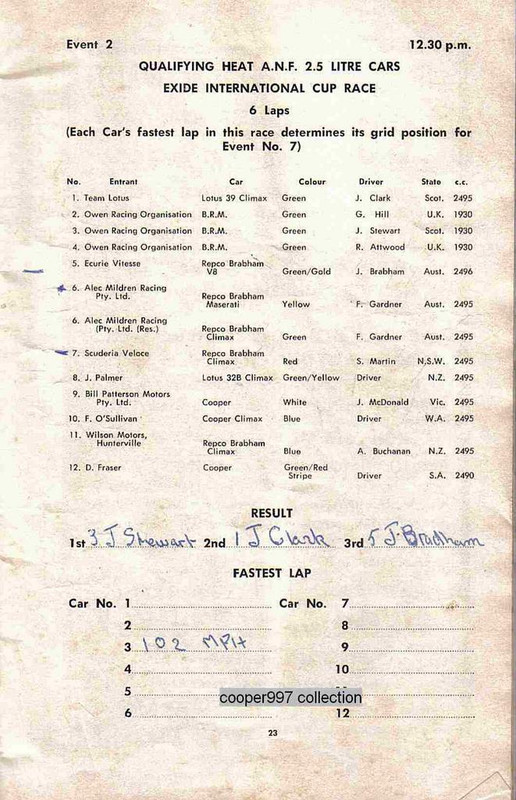 Event 2 12.30 p.m.
QUALIFYING HEAT A.N.F. 2.5 LITRE CARS
EXIDE INTERNATIONAL CUP RACE
6 Laps
(Each Car's fastest lap in this race determines its grid position for
Event No. 7)
No. Entrant Car Colour Driver State c.c.
1. Team Lotus Lotus 39 Climax Green J. Clark Scot. 2495
2. Owen Racing Organisation B.R.M. Green G. Hill U.K. 1930
3. Owen Racing Organisation B.R.M. Green J. Stewart Scot. 1930
4. Owen Racing Organisation B.R.M. Green R. Attwood U.K. 1930
5. Ecurie Vitesse Repco Brabham
V8 Green/Gold J. Brabham Aust. 2496
6. Alec Mildren Racing
Pty. Ltd. Repco Brabham
Maserati Yellow F. Gardner Aust. 2495
6. Alec Mildren Racing
(Pty. Ltd. (Res.) Repco Brabham
Climax Green F. Gardner Aust. 2495
7. Scuderia Veloce Repco Brabham
Climax Red S. Martin N.S.W. 2495
8. J. Palmer Lotus 32B Climax Green/Yellow Driver N.Z. 2495
9. Bill Patterson Motors
Pty. Ltd. Cooper White J. McDonald Vic. 2495
10. F. O'Sullivan Cooper Climax Blue Driver W.A. 2495
11. Wilson Motors,
Hunterville Repco Brabham
Climax Blue A. Buchanan N.Z. 2495
12. D. Fraser Cooper Green/Red
Stripe Driver S.A. 2490
RESULT
1st 3 J Stewart 2nd 1 J Clark 3rd 5 J. Bradham
FASTEST LAP
Car No. 1 Car No. 7
2 8
3 102 MPH 9
4 10
5
cooper997 collection
6 12
23